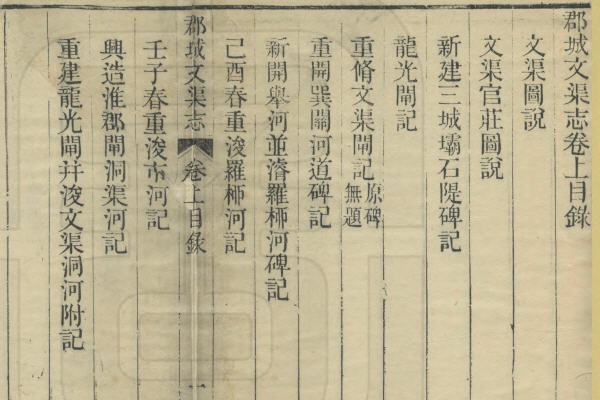 郡城文渠志卷上目錄
文渠圖說
文渠官莊圖說
新建三城壩石隄碑記
龍光閘記
重脩文渠閘記原碑無題
重開巽關河道碑記
新開舉河並濬羅柳河碑記
己酉春重浚羅柳河記
郡城文渠志 卷上目錄 一
壬子春重浚市河記
興造淮郡閘洞渠河記
重建龍光閘并浚文渠洞河附記